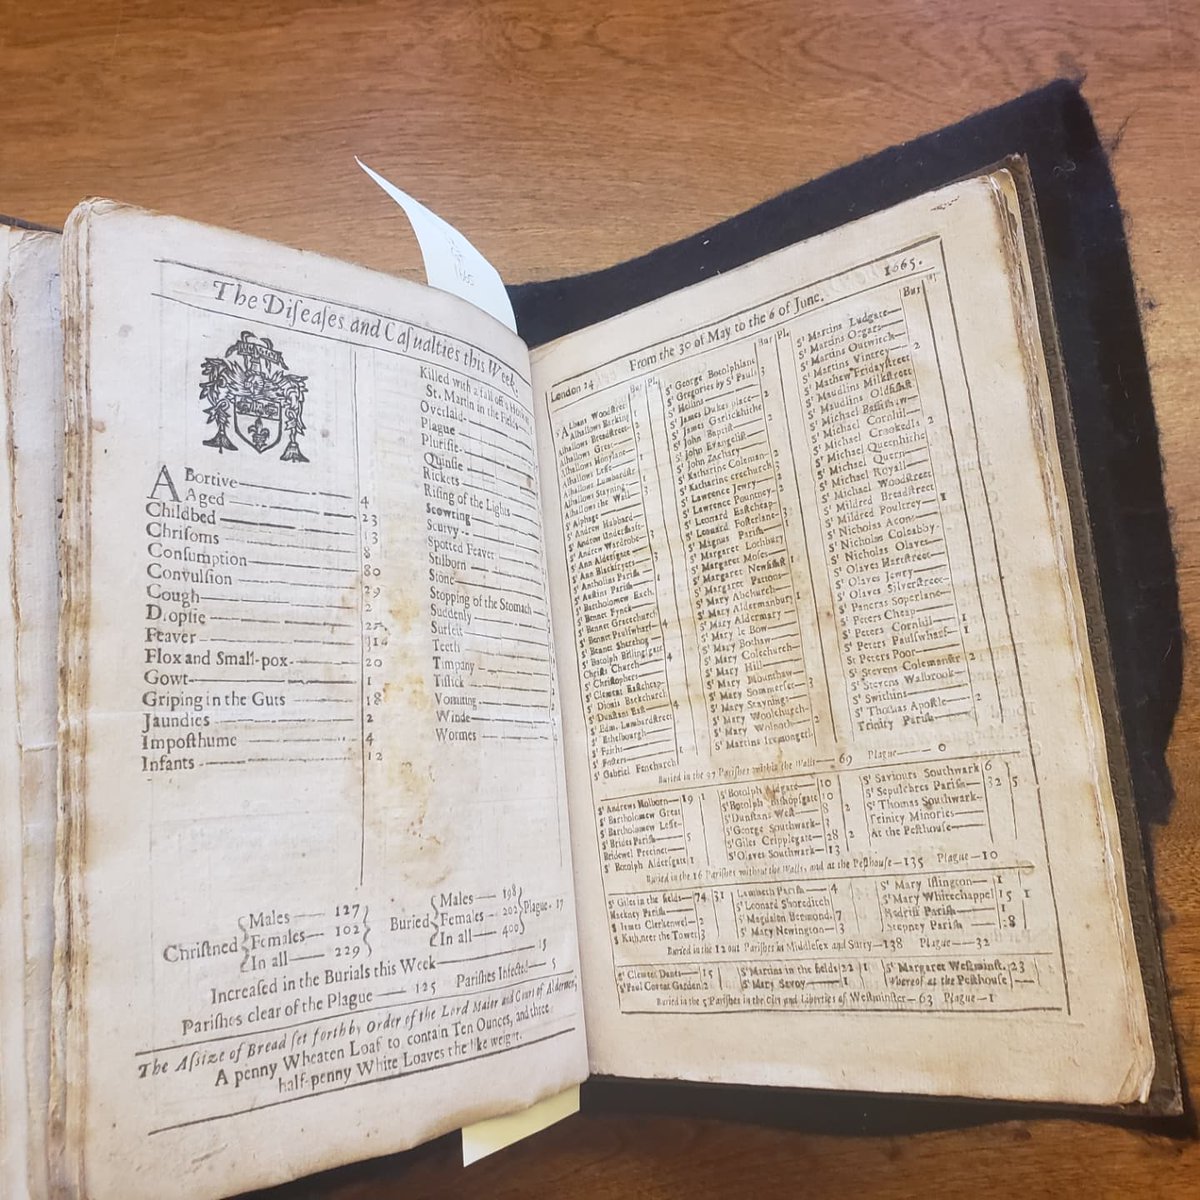 The Diſeaſes and Caſualties this Week.
Abortive 4
Aged 23
Childbed 13
Chriſoms 8
Conſumption 80
Convulſion 29
Cough 2
Dropſie
Feaver
Flox and Small-pox 20
Gowt 1
Griping in the Guts 18
Jaundies 2
Impoſthume 4
Infants 12
Killed with a fall off a
St. Martin in the Fields
Overlaid
Plague
Pluriſie
Quinſie
Rickets
Riſing of the Lights
Scowring
Scurvy
Spotted Feaver
Stilborn
Stone
Stopping of the Stomach
Suddenly
Surfeit
Teeth
Timpany
Tiſſick
Vomiting
Winde
Wormes
Chriſtned
Males 127
Females 102
In all 229
Buried
Males 198
Females 202
In all 400
Plague 17
Increaſed in the Burials this Week 15
Pariſhes clear of the Plague 125 Pariſhes Infected 5
The Aſſize of Bread ſet forth by Order of the Lord Maior and Court of Aldermen,
A penny Wheaten Loaf to contain Ten Ounces, and three
half-penny White Loaves the like weight.
London 24 From the 30 of May to the 6 of June. 1665.
Bur Pl.
Albans Woodſtreet
Alhallows Barking
Alhallows Breadſtreet
Alhallows Great
Alhallows Honylane
Alhallows Leſſe
Alhallows Lumbardſtr
Alhallows Stayning
Alhallows the Wall
Sᵗ Alphage
Sᵗ Andrew Hubbard
Sᵗ Andrew Underſhaft
Sᵗ Andrew Wardrobe
Sᵗ Ann Alderſgate
Sᵗ Ann Blackfryers
Sᵗ Antholins Pariſh
Sᵗ Auſtins Pariſh
Sᵗ Bartholomew Exch.
Sᵗ Bennet Fynck
Sᵗ Bennet Gracechurch
Sᵗ Bennet Paulſwharf
Sᵗ Bennet Sherehog
Sᵗ Botolph Billingſgate
Chriſts Church
Sᵗ Chriſtophers
Sᵗ Clement Eaſtcheap
Sᵗ Dionis Backchurch
Sᵗ Dunſtans Eaſt
Sᵗ Edm. Lumbardſtreet
Sᵗ Ethelborough
Sᵗ Faiths
Sᵗ Foſters
Sᵗ Gabriel Fenchurch
Bur Pl.
Sᵗ George Botolphlane
Sᵗ Gregories by Sᵗ Pauls
Sᵗ Hellins
Sᵗ James Dukes place
Sᵗ James Garlickhithe
Sᵗ John Baptiſt
Sᵗ John Evangeliſt
Sᵗ John Zachary
Sᵗ Katharine Coleman
Sᵗ Katharine crechurch
Sᵗ Lawrence Jewry
Sᵗ Lawrence Pountney
Sᵗ Leonard Eaſtcheap
Sᵗ Leonard Foſterlane
Sᵗ Magnus Pariſh
Sᵗ Margaret Lothbury
Sᵗ Margaret Moſes
Sᵗ Margaret Newfiſhſt
Sᵗ Margaret Pattons
Sᵗ Mary Abchurch
Sᵗ Mary Aldermanbury
Sᵗ Mary Aldermary
Sᵗ Mary le Bow
Sᵗ Mary Bothaw
Sᵗ Mary Colechurch
Sᵗ Mary Hill
Sᵗ Mary Mounthaw
Sᵗ Mary Sommerſet
Sᵗ Mary Stayning
Sᵗ Mary Woolchurch
Sᵗ Mary Wolnoth
Sᵗ Martins Iremongerl.
Bur
Sᵗ Martins Ludgate
Sᵗ Martins Orgars
Sᵗ Martins Outwitch
Sᵗ Martins Vintrey
Sᵗ Mathew Fridayſtreet
Sᵗ Maudlins Milkſtreet
Sᵗ Maudlins Oldfiſhſt
Sᵗ Michael Baſſiſhaw
Sᵗ Michael Cornhil
Sᵗ Michael Crookedl.
Sᵗ Michael Queenhithe
Sᵗ Michael Quern
Sᵗ Michael Royall
Sᵗ Michael Woodſtreet
Sᵗ Mildred Breadſtreet
Sᵗ Mildred Poultrey
Sᵗ Nicholas Acons
Sᵗ Nicholas Coleabby
Sᵗ Nicholas Olaves
Sᵗ Olaves Hartſtreet
Sᵗ Olaves Jewry
Sᵗ Olaves Silverſtreet
Sᵗ Pancras Soperlane
Sᵗ Peters Cheap
Sᵗ Peters Cornhil
Sᵗ Peters Paulſwharf
St Peters Poor
Sᵗ Stevens Colemanſtr
Sᵗ Stevens Walbrook
Sᵗ Swithins
Sᵗ Thomas Apoſtle
Trinity Pariſh
Buried in the 97 Pariſhes within the Walls 69 Plague 0
Sᵗ Andrews Holborn 19 1
Sᵗ Bartholomew Great
Sᵗ Bartholomew Leſſe
Sᵗ Brides Pariſh 5
Bridewel Precinct
Sᵗ Botolph Alderſgate 1
Sᵗ Botolph Aldgate 10
Sᵗ Botolph Biſhopſgate 10
Sᵗ Dunſtans Weſt 8 2
Sᵗ George Southwark 3
Sᵗ Giles Cripplegate 28 2
Sᵗ Olaves Southwark 13
Sᵗ Saviours Southwark 6
Sᵗ Sepulchres Pariſh 32 5
Sᵗ Thomas Southwark
Trinity Minories
At the Peſthouſe
Buried in the 16 Pariſhes without the Walls, and at the Peſthouſe 135 Plague 10
Sᵗ Giles in the fields 74 31
Hackney Pariſh
Sᵗ James Clerkenwel 2
Sᵗ Kath. neer the Tower 3
Lambeth Pariſh 4
Sᵗ Leonard Shoreditch
Sᵗ Magdalen Bermond. 7
Sᵗ Mary Newington 3
Sᵗ Mary Iſlington 1
Sᵗ Mary Whitechappel 15 1
Redriff Pariſh 1
Stepney Pariſh 28
Buried in the 12 out Pariſhes in Middleſex and Surry 138 Plague 32
Sᵗ Clement Danes 15
Sᵗ Paul Covent Garden 2
Sᵗ Martins in the fields 22 1
Sᵗ Mary Savoy 1
Sᵗ Margaret Weſtminſt. 23
Whereof at the Peſthouſe
Buried in the 5 Pariſhes in the City and Liberties of Weſtminſter 63 Plague 1